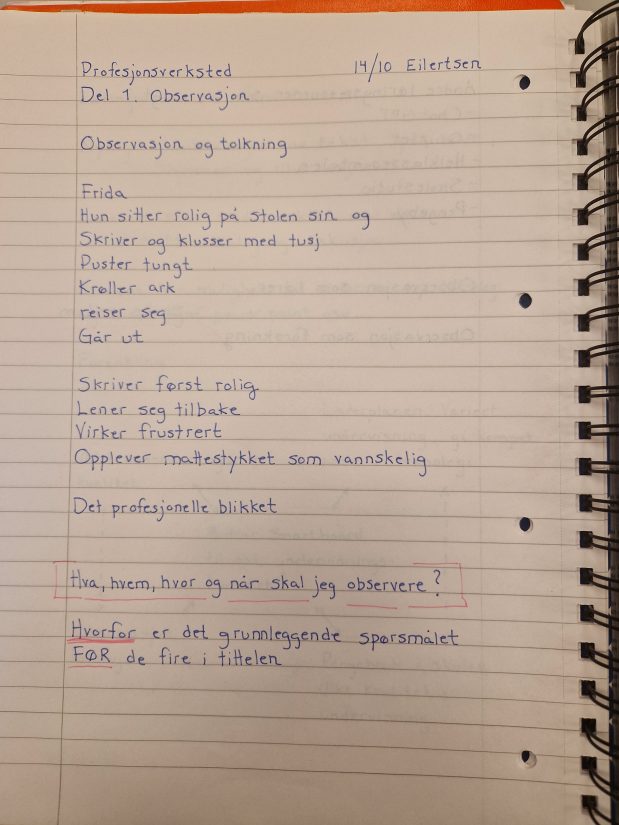 Profesjonsverksted 14/10 Eilertsen
Del 1. Observasjon
Observasjon og tolkning
Frida
Hun sitter rolig på stolen sin og
Skriver og klusser med tusj
Puster tungt
Krøller ark
reiser seg
Går ut
Skriver først rolig.
Lener seg tilbake
Virker frustrert
Opplever mattestykket som vannskelig
Det profesjonelle blikket
Hva, hvem, hvor og når skal jeg observere?
Hvorfor er det grunnleggende spørsmålet
FØR de fire i tittelen